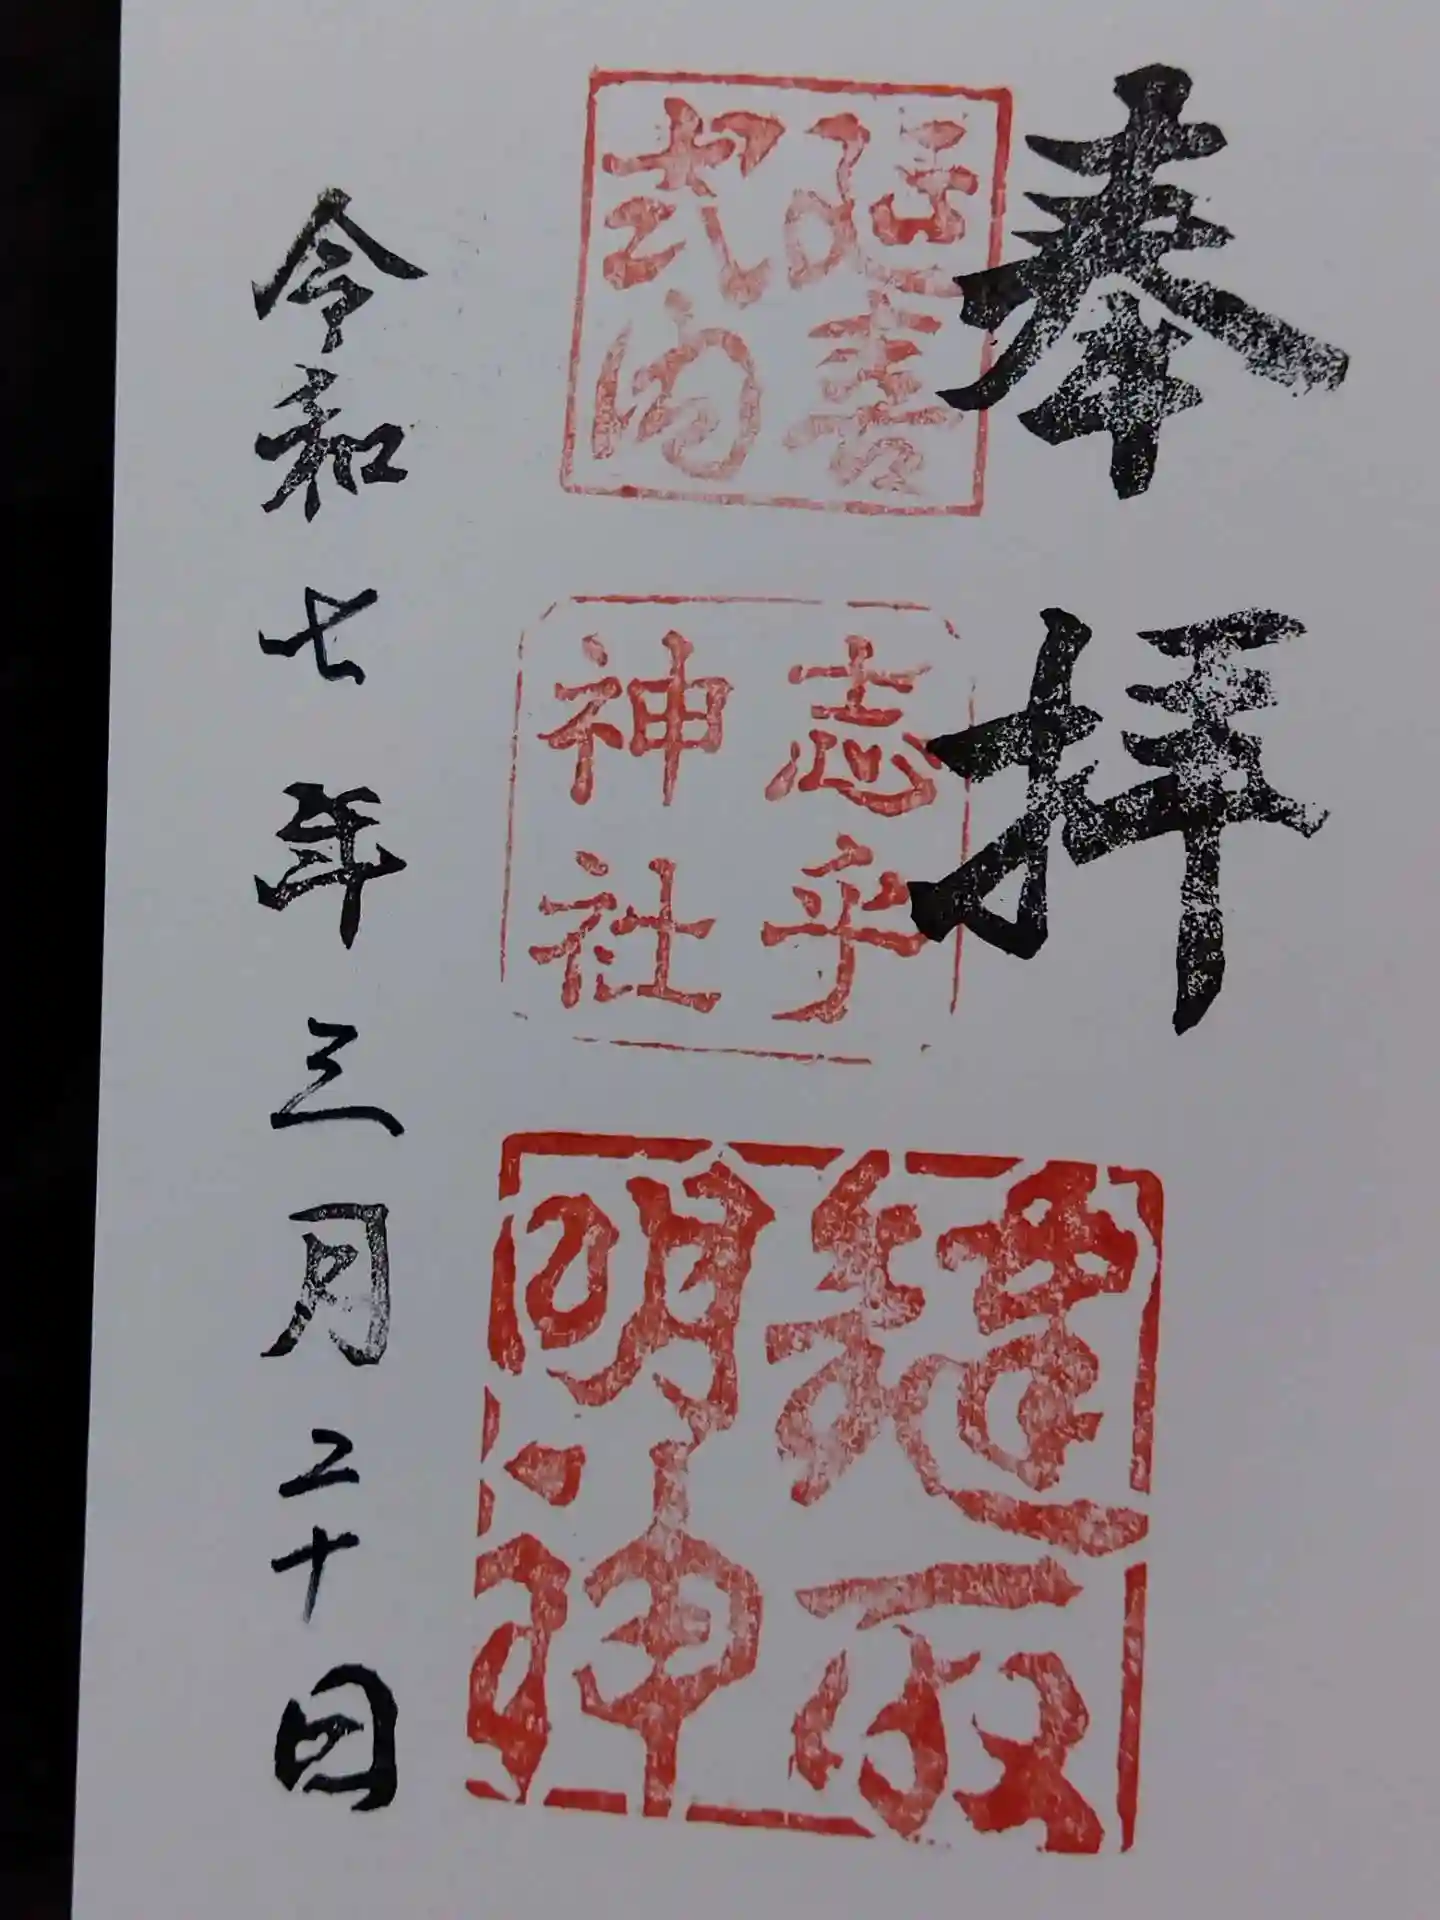 奉拝
延喜
式内
志乎
神社
明神
令和七年三月二十日